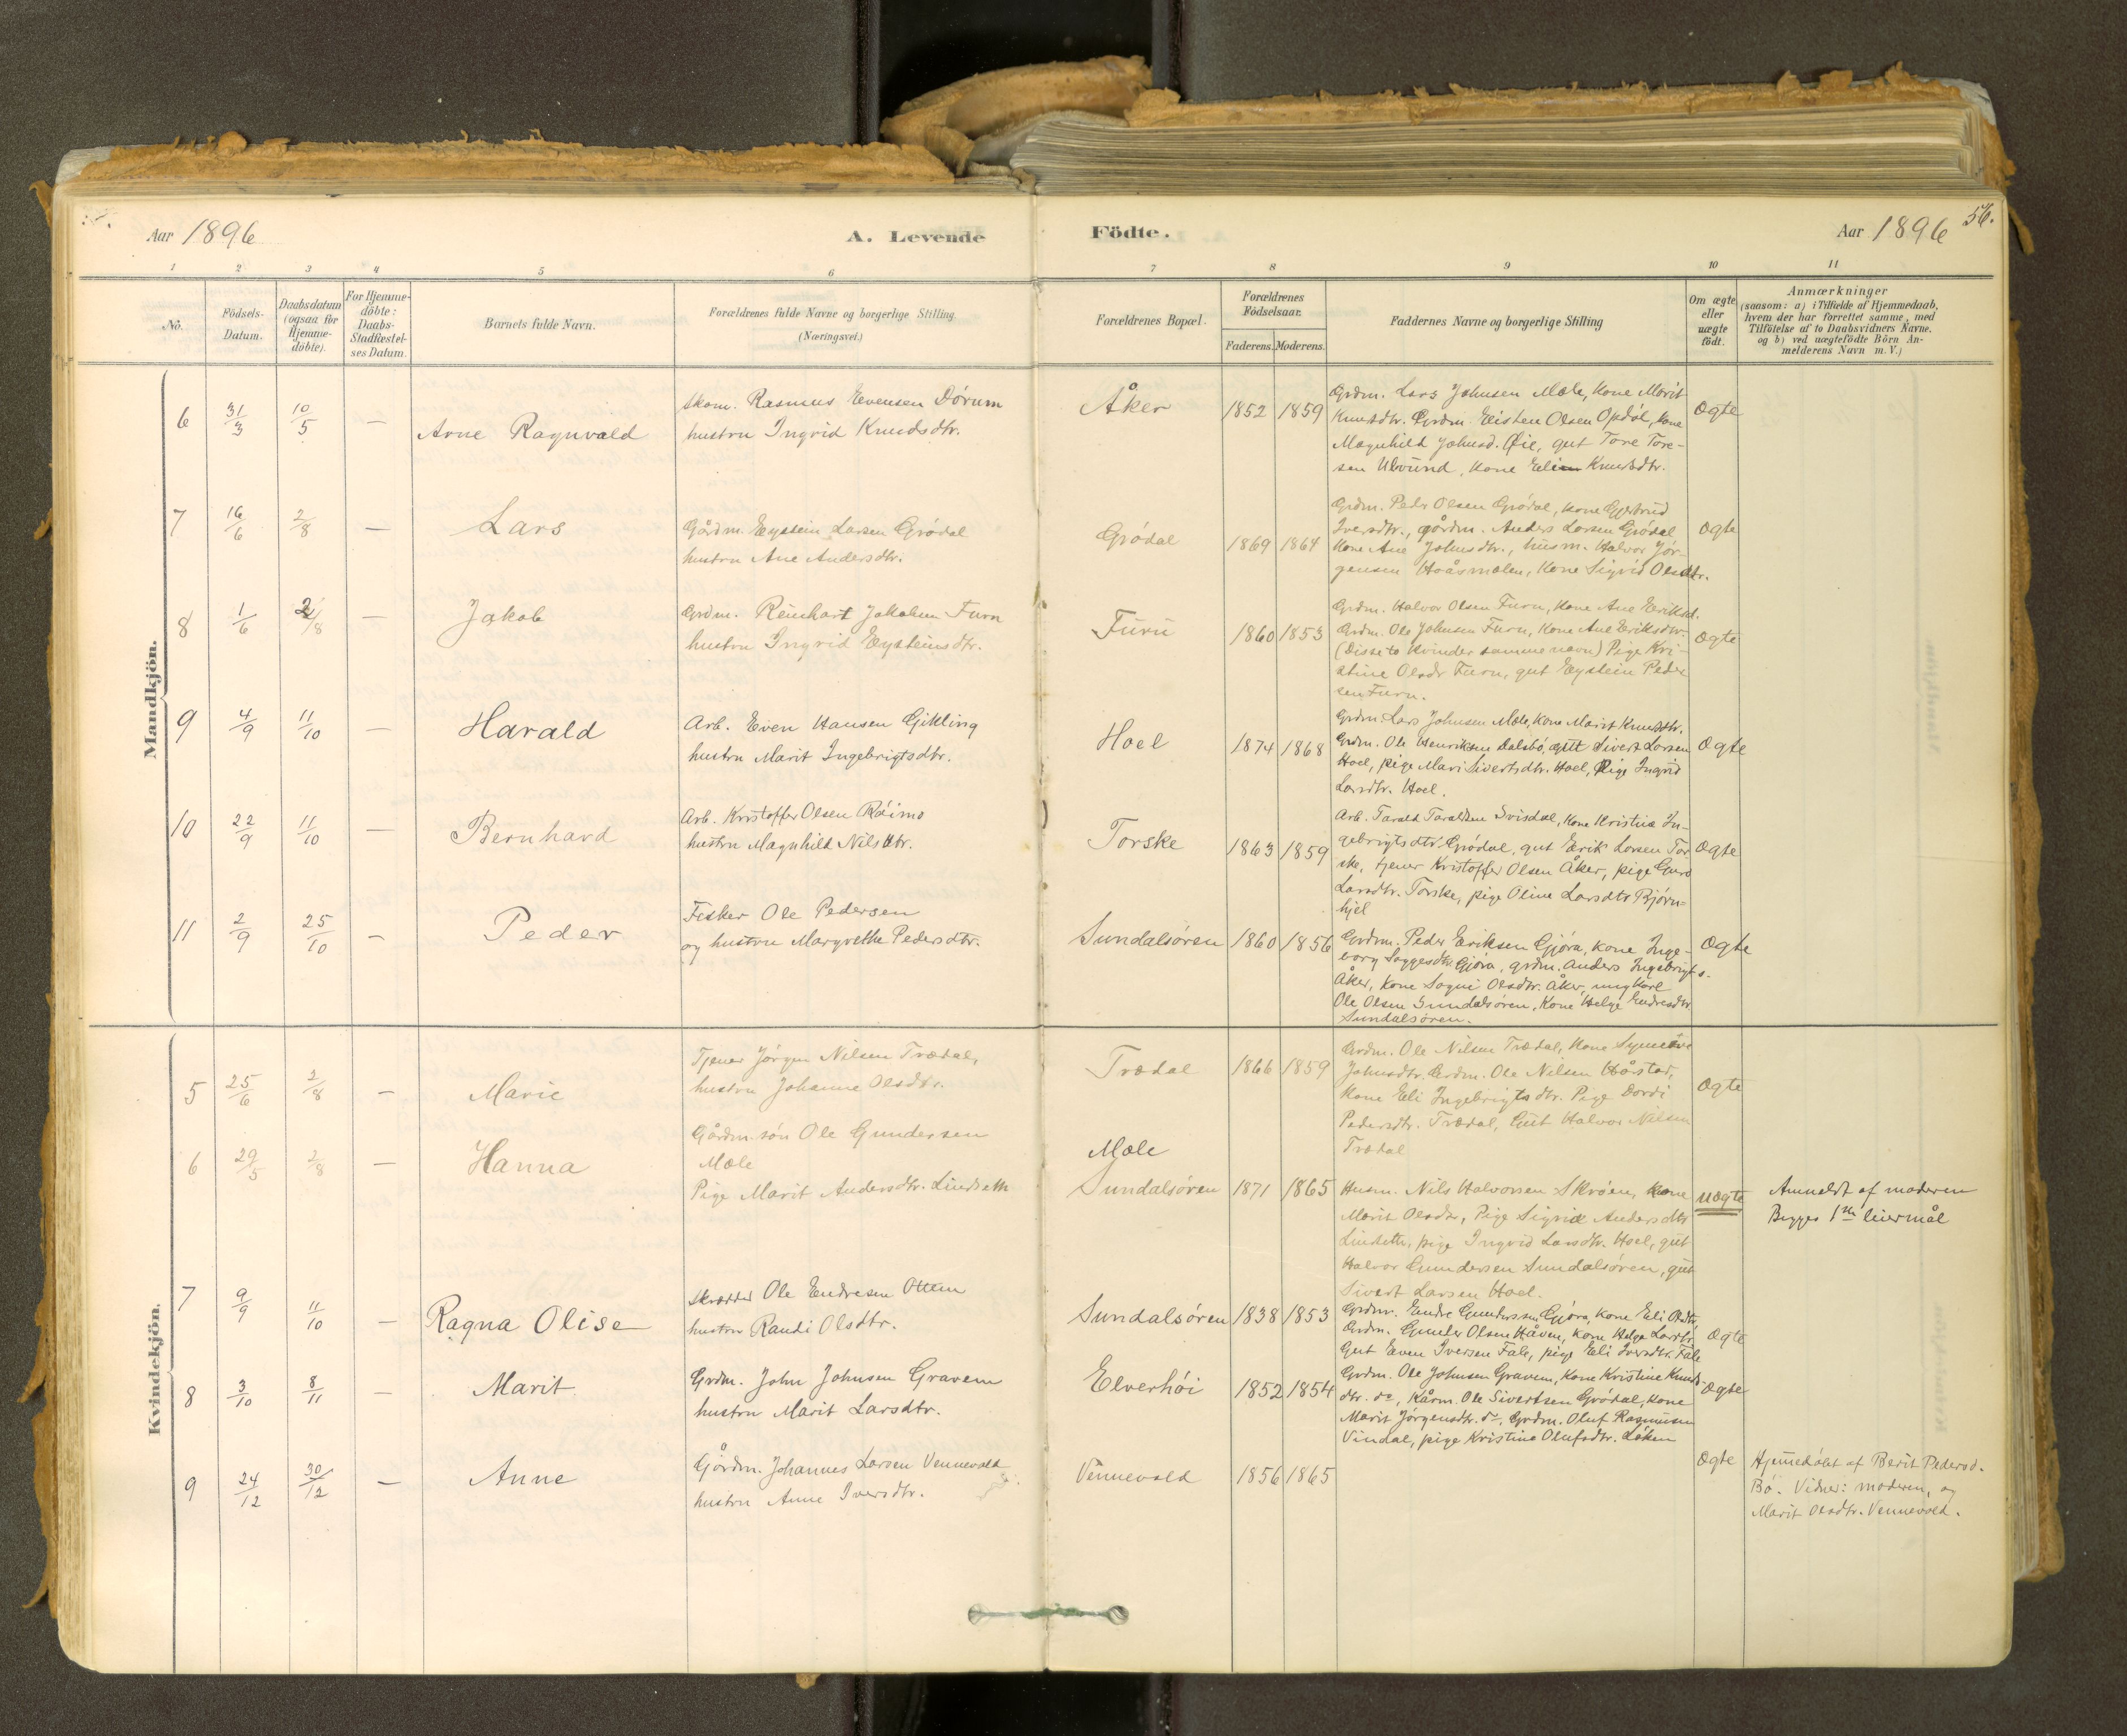 Aar 1896
A. Levende
Födte.
Aar 1896
56.
1 2 3 4 5 6 7 8 9 10 11
No.
Födsels-
Datum.
Daabsdatum
(ogsaa for
Hjemme-
döbte).
For Hjemme-
döbte:
Daabs-
Stadfæstel-
ses Datum.
Barnets fulde Navn.
Forældrenes fulde Navne og borgerlige Stilling
(Næringsvei.)
Forældrenes Bopæl.
Forældrenes
Födselsaar.
Faderens. Moderens.
Faddernes Navne og borgerlige Stilling
Om ægte
eller
uægte
födt.
Anmærkninger
(saasom: a) i Tilfælde af Hjemmedaab,
hvem der har forrettet samme, med
Tilföielse af to Daabsvidners Navne.
og b) ved uægtefödte Börn An-
melderens Navn m. V.)
Mandkjön.
6 31/3 10/5 — Arne Ragnvald
Skom. Rasmus Evensen Dørum
hustru Ingrid Knudsdtr.
Åker 1852 1859
Grdm. Lars Johnsen Mæle, kone Marit
Knudsdtr. Grdm. Eisten Olsen Opdøl, kone
Magnhild Johnsd. Øie, gut Tore Tore-
sen Ulvund, kone Eli Knudsdtr.
Ægte
7 16/6 2/8 — Lars
Gårdm. Eystein Larsen Grødal
hustru Ane Andersdtr.
Grødal 1869 1864
Grdm. Peder Olsen Grødal, kone Gjertrud
Iversdtr., gårdm. Anders Larsen Grødal
kone Ane Johnsdtr., husm. Halvor Jør-
gensen Hoåsmælen, kone Sigrid Olsdtr.
Ægte
8 1/6 2/8 — Jakob
Grdm. Reinhart Jakobsen Furu
hustru Ingrid Eysteinsdtr.
Furu 1860 1853
Grdm. Halvor Olsen Furu, kone Ane Eriksd.
Grdm. Ole Johnsen Furu, kone Ane Eriksdtr.
(Disse to kvinder samme navn) Pige Kri-
stine Olsdr Furu, gut Eystein Peder
sen Furu.
Ægte
9 4/9 11/10 — Harald
Arb. Even Hansen Gikling
hustru Marit Ingebrigtsdtr.
Hoel 1874 1868
Grdm. Lars Johnsen Mæle, kone Marit Knudsdtr.
Grdm. Ole Henriksen Dalsbø, gut Sivert Larsen
Hoel, pige Mari Sivertsdtr. Hoel, Pige Ingrid
Larsdtr. Hoel.
Ægte
10 22/9 11/10 — Bernhard
Arb. Kristoffer Olsen Røimo
hustru Magnhild Nilsdtr.
Torske 1863 1859
Arb. Tarald Taraldsen Svisdal, kone Kristine In-
gebrigtsdtr. Grødal, gut Erik Larsen Tor
ske, tjener Kristoffer Olsen Åker, pige Guro
Larsdtr. Torske, pige Oline Larsdtr Bjørn-
hjel
Ægte
11 2/9 25/10 — Peder
Fisker Ole Pedersen
og hustru Margrethe Pedersdtr.
Sundalsøren 1860 1856
Grdm. Peder Eriksen Gjøra, kone Inge-
borg Saggesdtr. Gjøra, grdm. Anders Ingebrigts.
Åker, kone Sogni Olsdtr. Åker, ungkarl
Ole Olsen Sundalsøren, kone Helge Endresdtr
Sundalsøren.
Ægte
Kvindekjön.
5 25/6 2/8 — Marie
Tjener Jørgen Nilsen Trædal,
hustru Johanne Olsdtr.
Trædal 1866 1859
Grdm. Ole Nilsen Trædal, kone Synnøve
Johnsdtr. Grdm. Ole Nilsen Hårstad,
kone Eli Ingebrigtsdtr. Pige Dordi
Pedersdtr. Trædal, Gut Halvor Nilsen
Trædal
Ægte
6 29/5 2/8 — Hanna
Gårdm. søn Ole Gundersen
Mæle
Pige Marit Andersdtr. Lindseth
Mæle
Sundalsøren 1871 1865
Husm. Nils Halvorsen Skrøen, kone
Marit Olsdtr, Pige Sigrid Andersdtr
Lindseth, pige Ingrid Larsdtr. Hoel, gut
Halvor Gundersen Sundalsøren, gut
Sivert Larsen Hoel.
uægte
Anmeldt af moderen
Begges 1ste leiermål
7 9/9 11/10 — Ragna Olise
Skrædder Ole Endresen Ottem
hustru Randi Olsdtr.
Sundalsøren 1838 1853
Grdm. Endre Gundersen Gjøra, kone Eli Olsdtr.
Grdm. Gunder Olsen Håven, kone Helge Larsdtr.
Gut Even Iversen Fale, pige Eli Iversdtr. Fale
Ægte
8 3/10 8/11 — Marit
Grdm. John Johnsen Gravem
hustru Marit Larsdtr.
Elverhøi 1852 1854
Grdm. Ole Johnsen Gravem, kone Kristine Knuds-
dtr. do, Kårm. Ole Sivertsen Grødal, kone
Marit Jørgensdtr. do, Grdm. Oluf Rasmusen
Vindal, pige Kristine Olufsdtr. Løken
Ægte
9 24/12 30/12 — Anne
Gårdm. Johannes Larsen Vennevold
hustru Anne Iversdtr.
Vennevold 1856 1865
Ægte
Hjemedøbt af Berit Pedersd.
Bø. Vidner: moderen, og
Marit Olsdtr. Vennevold.